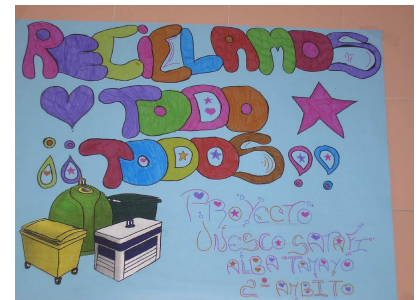 RECICLAMOS
TODO
¡¡TODOS!!
PROYECTO
UNESCO-SAFA
ALBA TAMAYO
2º AMBITO